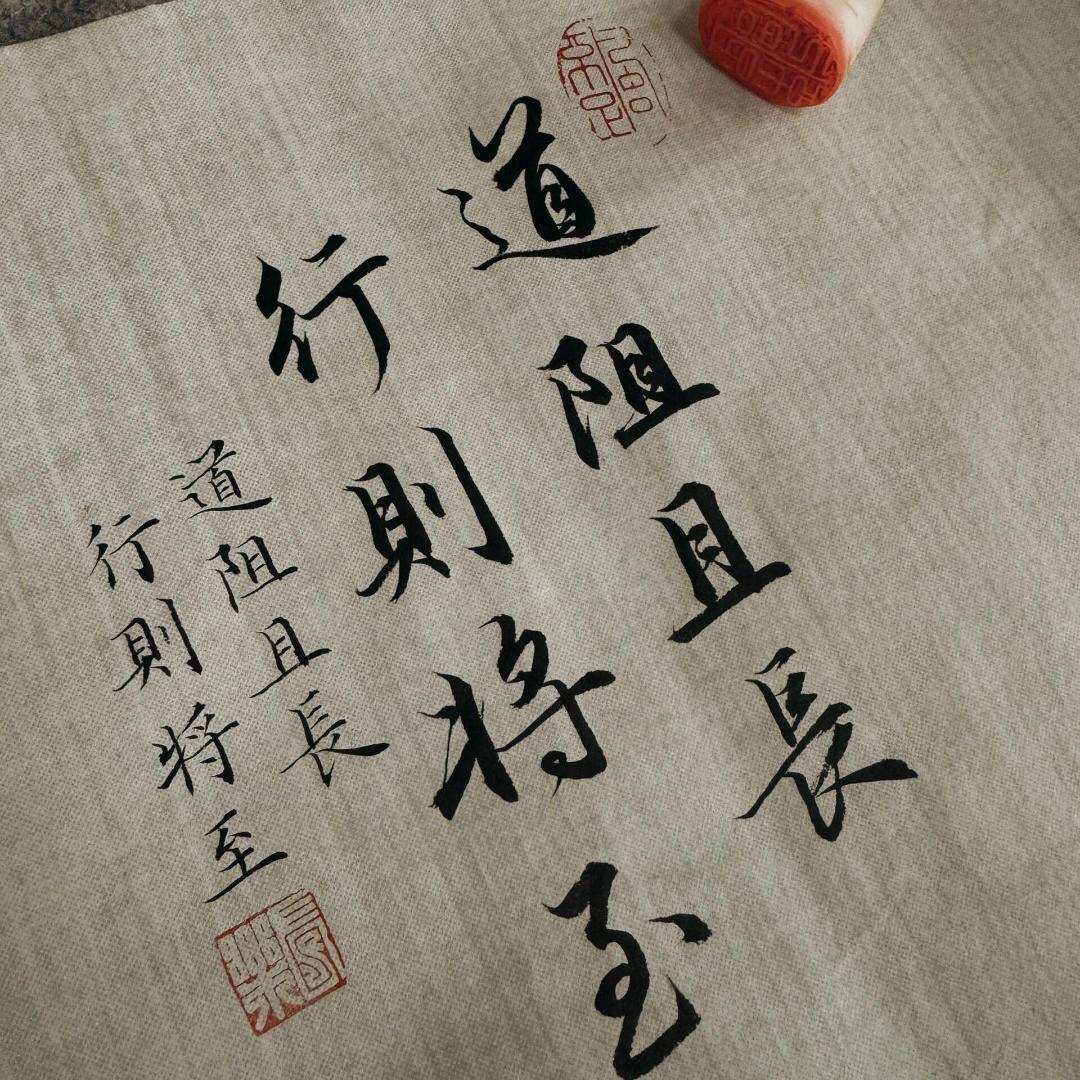 道阻且長
行則將至
道阻且長
行則將至
知足